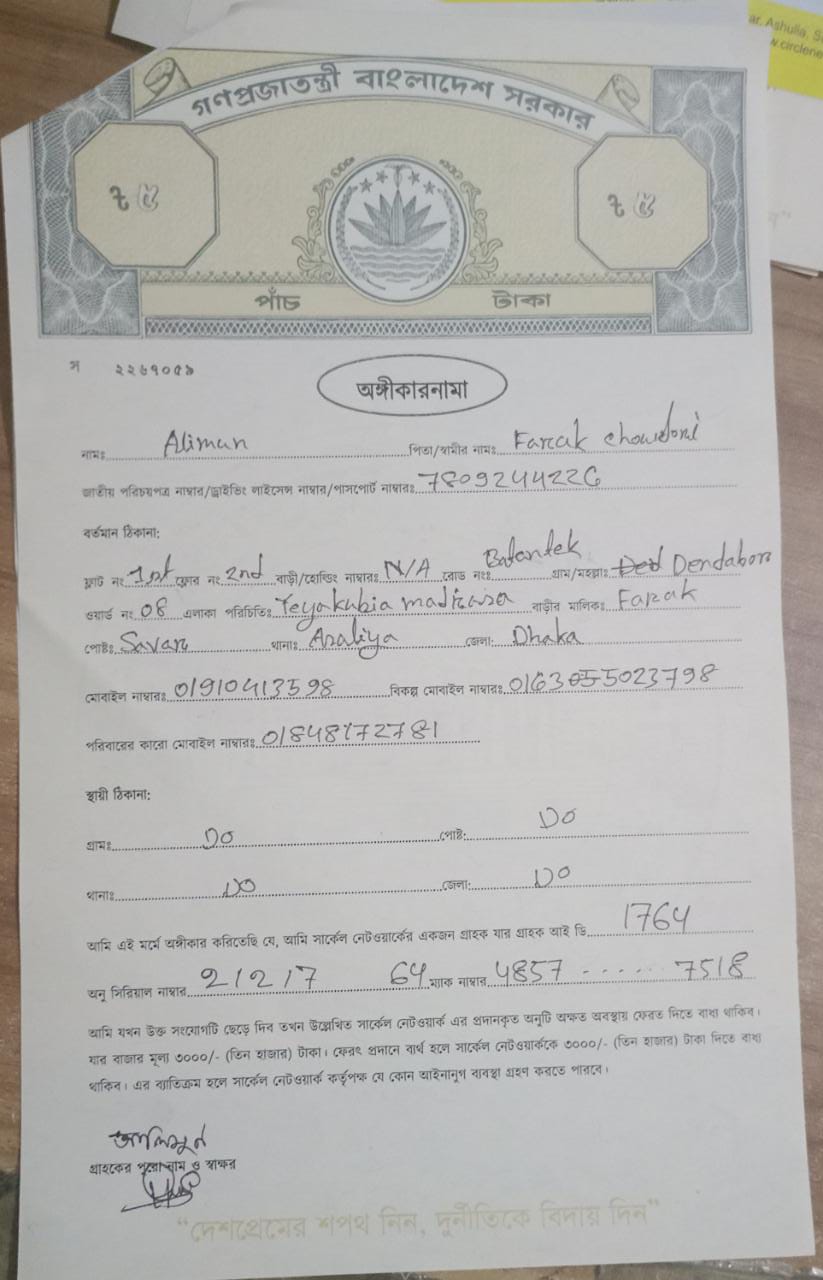 ar, Ashulia, S
w.circlene
গণপ্রজাতন্ত্রী বাংলাদেশ সরকার
৳ ৫ ৳ ৫
পাঁচ টাকা
স ২২৬৭০৫৯
অঙ্গীকারনামা
নামঃ Alimun পিতা/স্বামীর নামঃ Farak chowdori
জাতীয় পরিচয়পত্র নাম্বার/ড্রাইভিং লাইসেন্স নাম্বার/পাসপোর্ট নাম্বারঃ 7809244226
বর্তমান ঠিকানা:
ফ্লাট নং 1st ফ্লোর নং 2nd বাড়ী/হোল্ডিং নাম্বারঃ N/A রোড নংঃ Batantek গ্রাম/মহল্লাঃ Dendabor
ওয়ার্ড নং 08 এলাকা পরিচিতিঃ Yeyakubia madrasa বাড়ীর মালিকঃ Farak
পোষ্টঃ Savar থানাঃ Asaliya জেলা: Dhaka
মোবাইল নাম্বারঃ 01910413598 বিকল্প মোবাইল নাম্বারঃ
পরিবারের কারো মোবাইল নাম্বারঃ 01848172781
স্থায়ী ঠিকানা:
গ্রামঃ DO পোষ্ট: DO
থানাঃ DO জেলা: DO
আমি এই মর্মে অঙ্গীকার করিতেছি যে, আমি সার্কেল নেটওয়ার্কের একজন গ্রাহক যার গ্রাহক আই ডি 1764
অনু সিরিয়াল নাম্বার 21217 64 ম্যাক নাম্বার 4857 ...... 7518
আমি যখন উক্ত সংযোগটি ছেড়ে দিব তখন উল্লেখিত সার্কেল নেটওয়ার্ক এর প্রদানকৃত অনুটি অক্ষত অবস্থায় ফেরত দিতে বাধ্য থাকিব।
যার বাজার মূল্য ৩০০০/- (তিন হাজার) টাকা। ফেরৎ প্রদানে ব্যর্থ হলে সার্কেল নেটওয়ার্ককে ৩০০০/- (তিন হাজার) টাকা দিতে বাধ্য
থাকিব। এর ব্যতিক্রম হলে সার্কেল নেটওয়ার্ক কর্তৃপক্ষ যে কোন আইনানুগ ব্যবস্থা গ্রহণ করতে পারবে।
আলিমুন
গ্রাহকের পুরো নাম ও স্বাক্ষর
"দেশপ্রেমের শপথ নিন, দুর্নীতিকে বিদায় দিন"